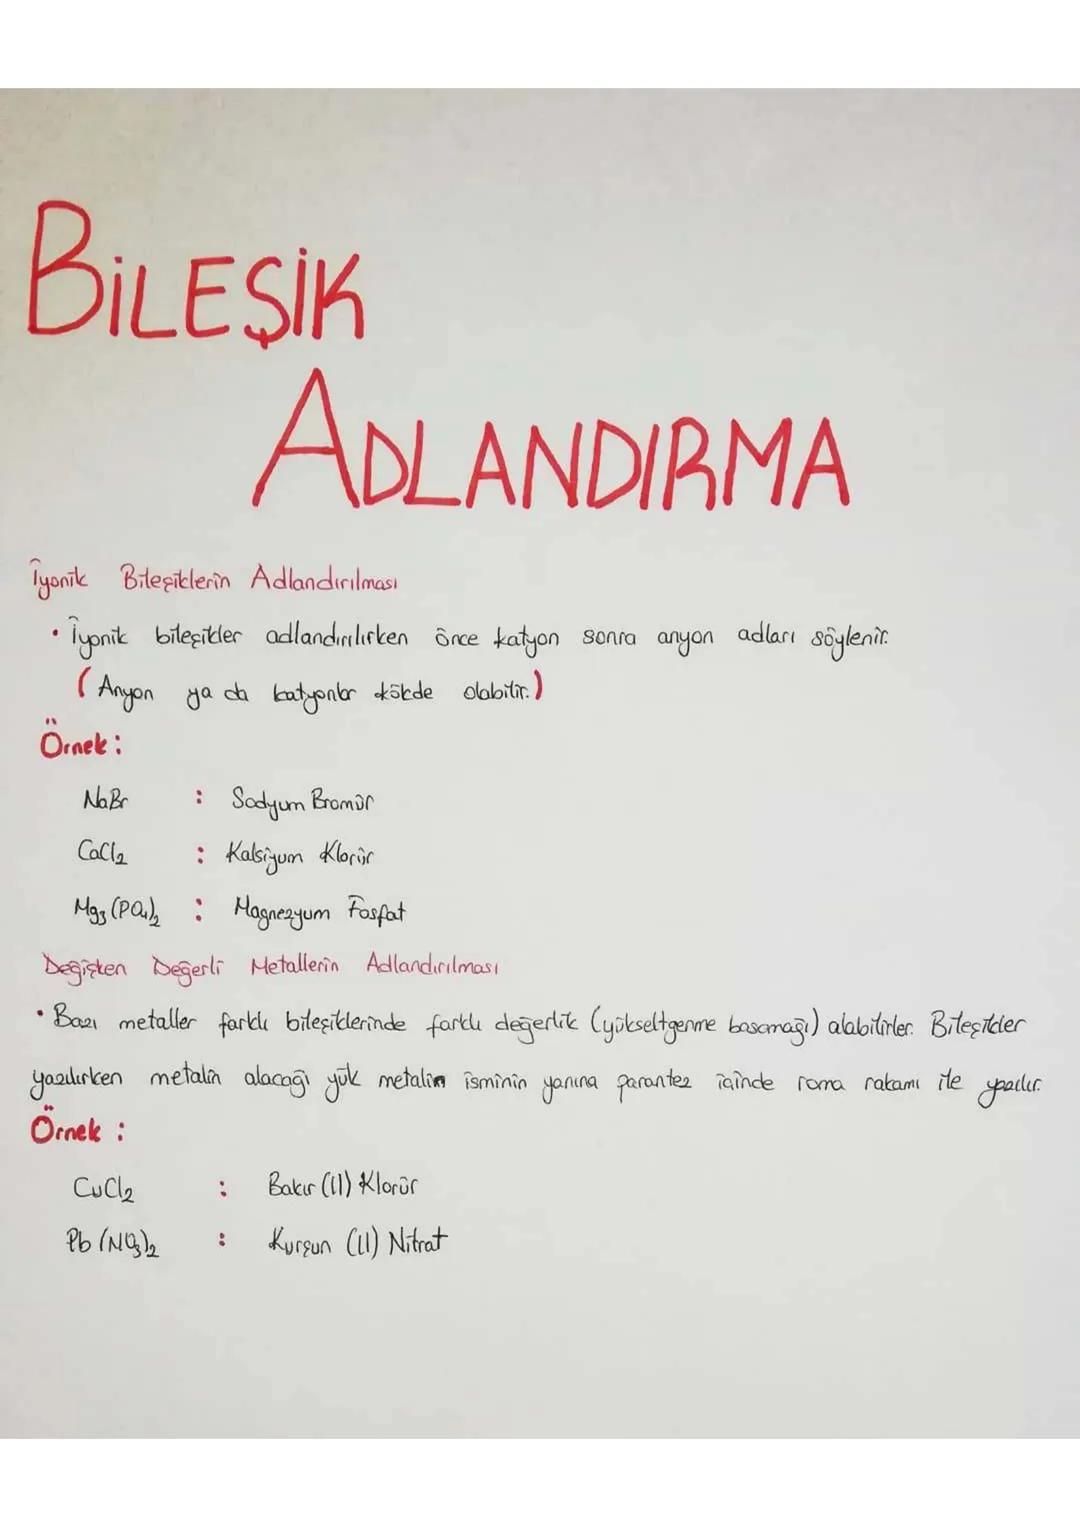 BİLEŞİK
ADLANDIRMA
İyonik Bileşiklerin Adlandırılması
• İyonik bileşikler adlandırılırken önce katyon sonra anyon adları söylenir.
(Anyon ya da katyonlar kökde olabilir.)
Örnek:
NaBr : Sodyum Bromür
CaCl₂ : Kalsiyum Klorür
Mg₃(PO₄)₂ : Magnezyum Fosfat
Değişken Değerli Metallerin Adlandırılması
• Bazı metaller farklı bileşiklerinde farklı değerlik (yükseltgenme basamağı) alabilirler. Bileşikler
yazılırken metalin alacağı yük metalin isminin yanına parantez içinde roma rakamı ile yazılır.
Örnek :
CuCl₂ : Bakır (II) Klorür
Pb(NO₃)₂ : Kurşun (II) Nitrat